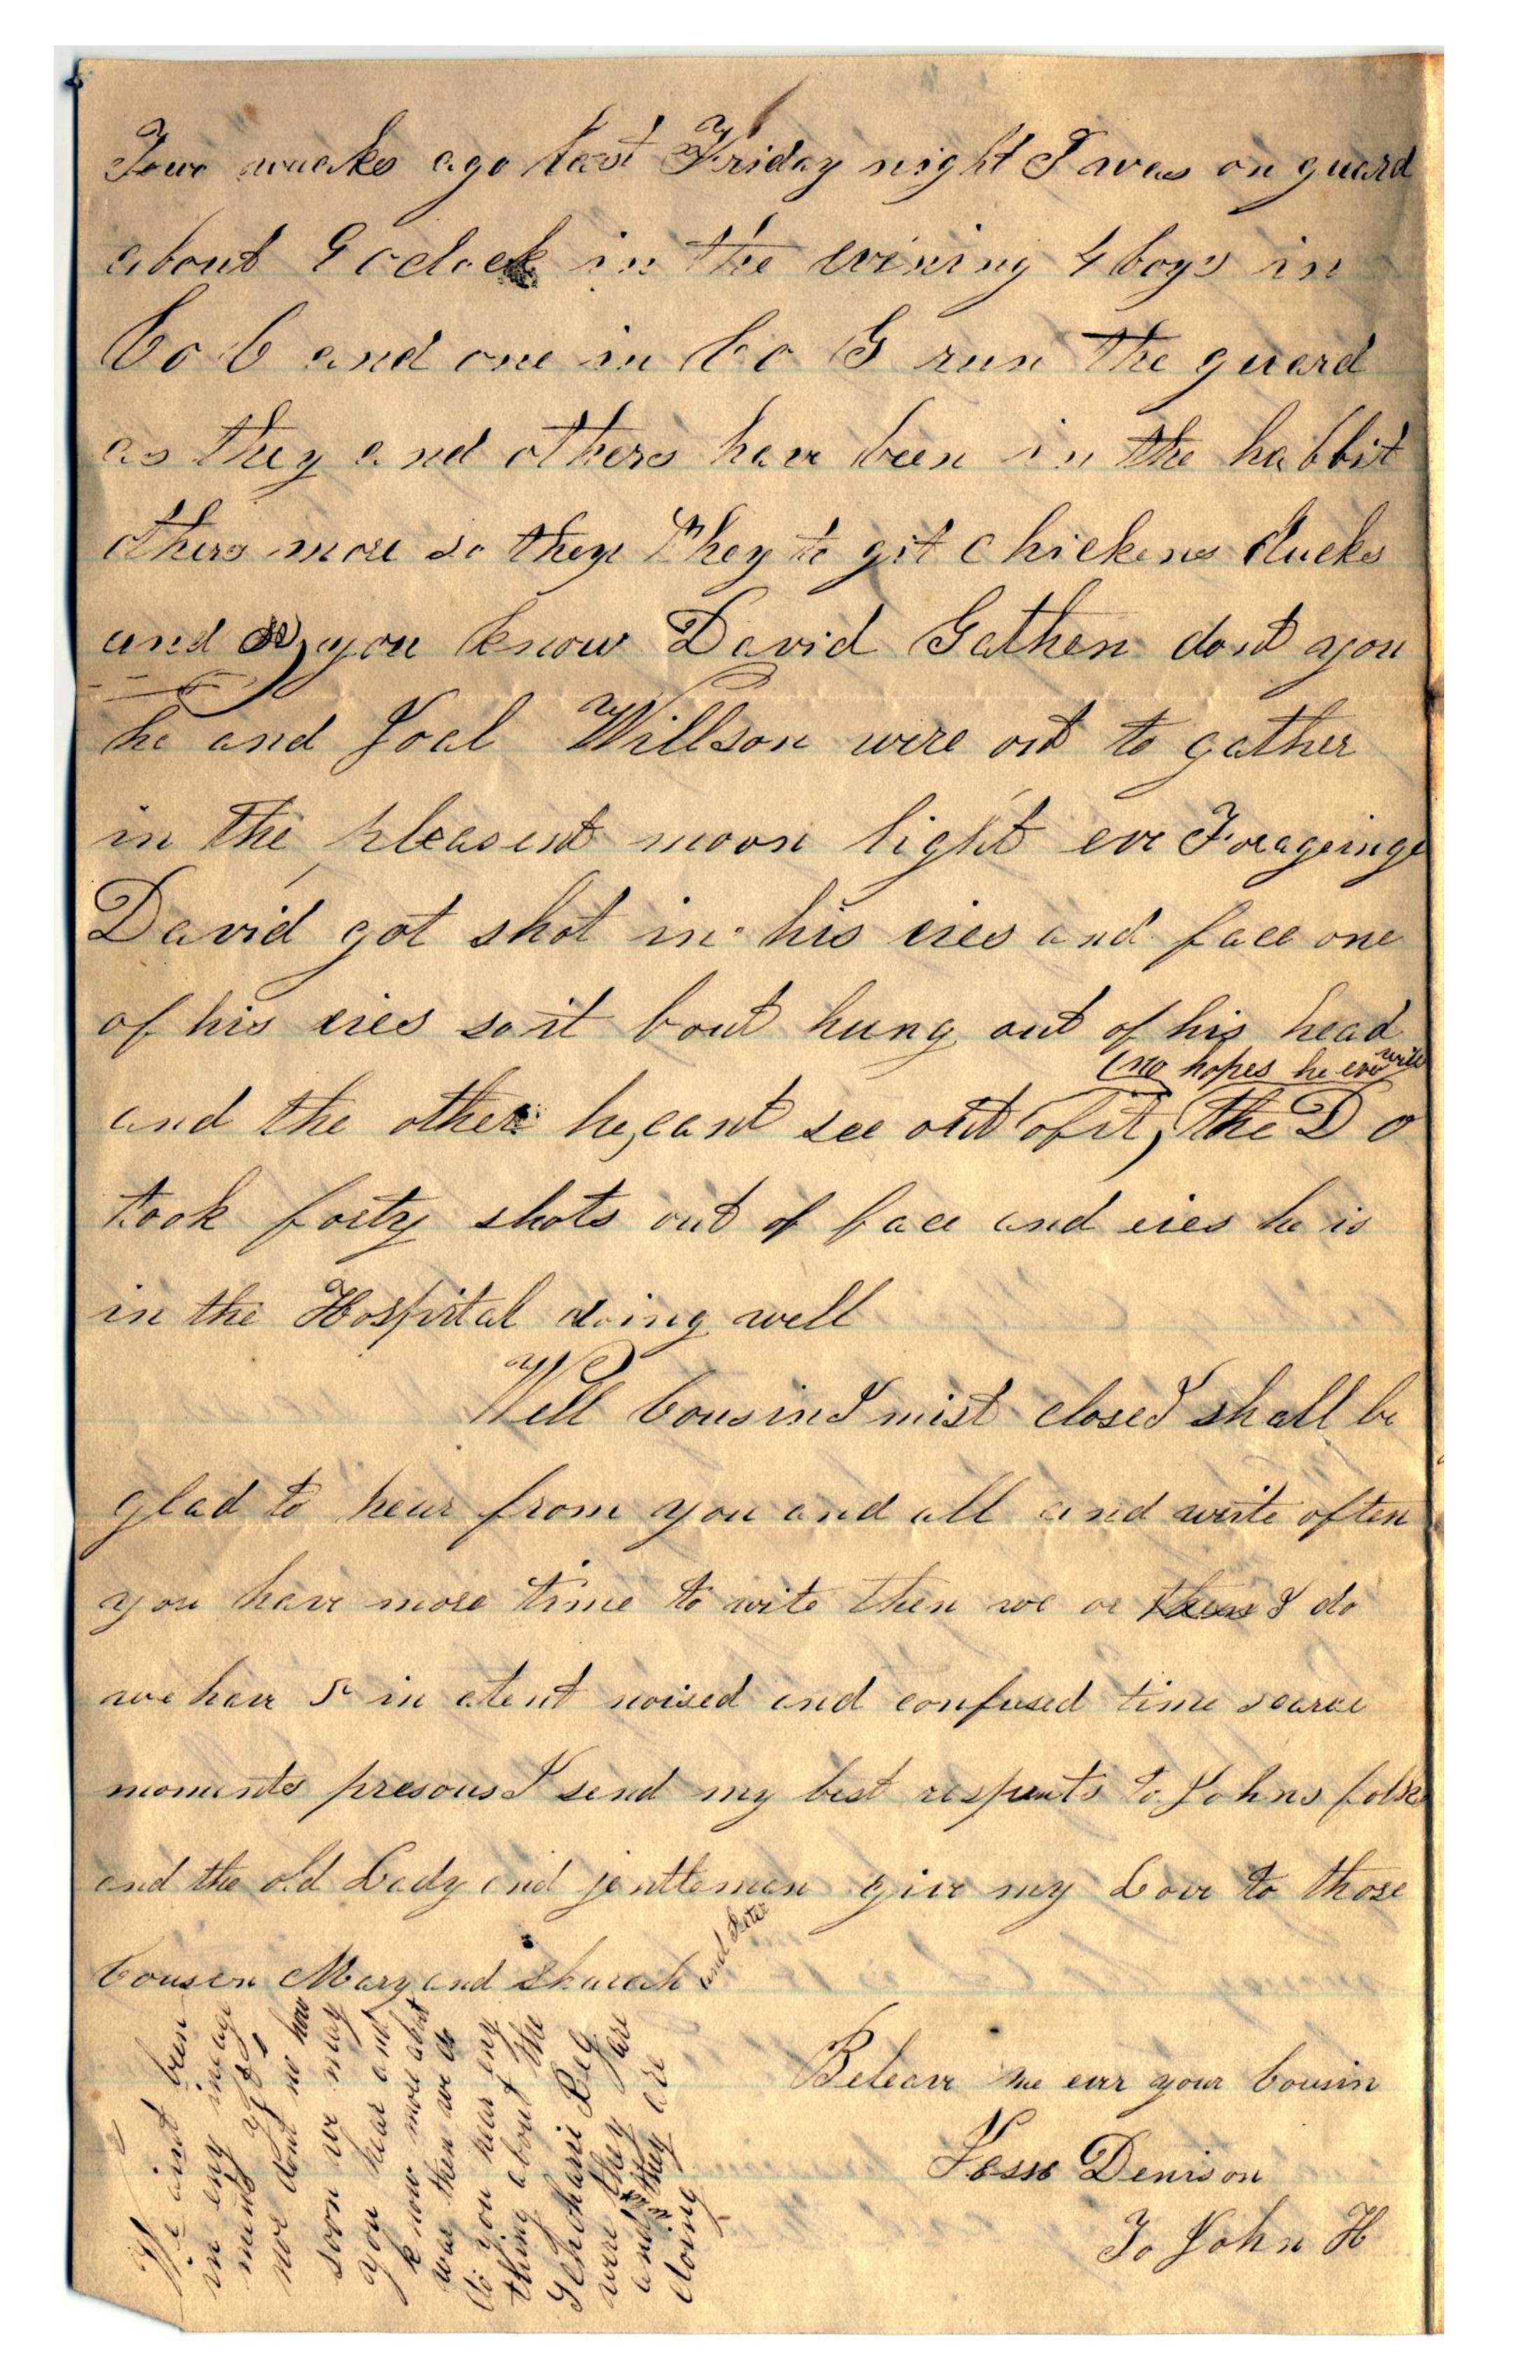 Four weaks ago last Friday night I was on guard
about 9 oclock in the evining 4 boys in
Co C and one in Co G run the guard
as they and others have been in the habbit
others more so then they to git chickens ducks
and you know David Gathen dont you
he and Joel Willson were out to gather
in the pleasent moon light eve Forageinge
David got shot in his eies and face one
of his eies so it bout hung out of his head
(no hopes he ever will
and the other he cant see out of it, the Do
took forty shots out of face and eies he is
in the Hospital doing well
Well Cousin I mist close I shall be
glad to hear from you and all and write often
you have more time to wite then we or I do
we have 5 in a tent noised and confused time scarce
moments presous I send my best respects to Johns folks
and the old Lady and jentleman give my Love to those
Cousen Mary and Sharah and Peter
Beleave me ever your Cousin
Jesse Denison
To John H
We aint been
in eny ingage
ments yet
nor dont no how
soon we may
you hear and
know more about
war then we do
do you hear eny
thing about the
Schoharie Reg
were they are
and they are
doing